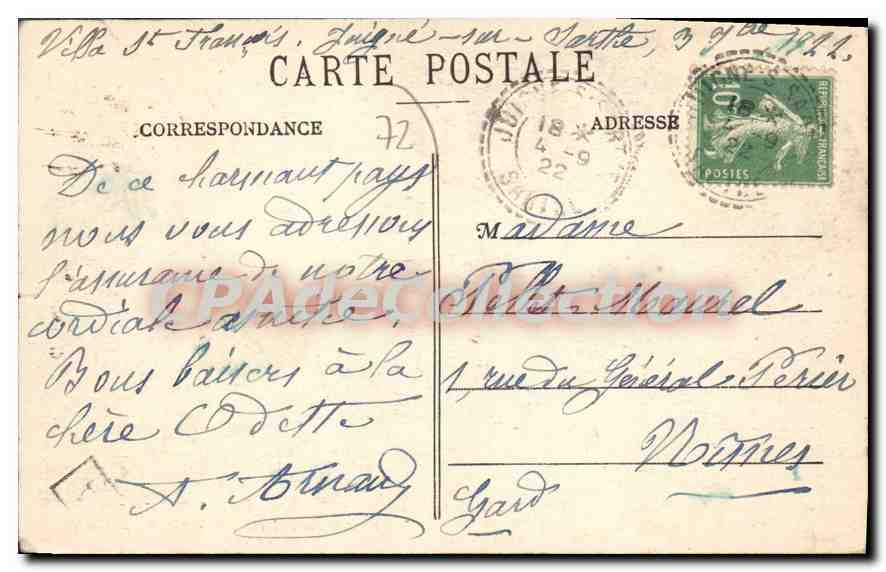 Villa St François. Juigné-sur-Sarthe, 3 7bre 1922.
CARTE POSTALE
CORRESPONDANCE
72
ADRESSE
JUIGNÉ-S-SARTHE
18 *
4 -9
22
18 *
4 -9
22
10
REPUBLIQUE FRANÇAISE
POSTES
De ce charmant pays
nous vous adressons
l'assurance de notre
cordiale amitié.
Bons baisers à la
chère Odette
A. Arnaud
Madame
Pellet-Maurel
1, rue du Général Périer
Nîmes
Gard
CPAdeCollection